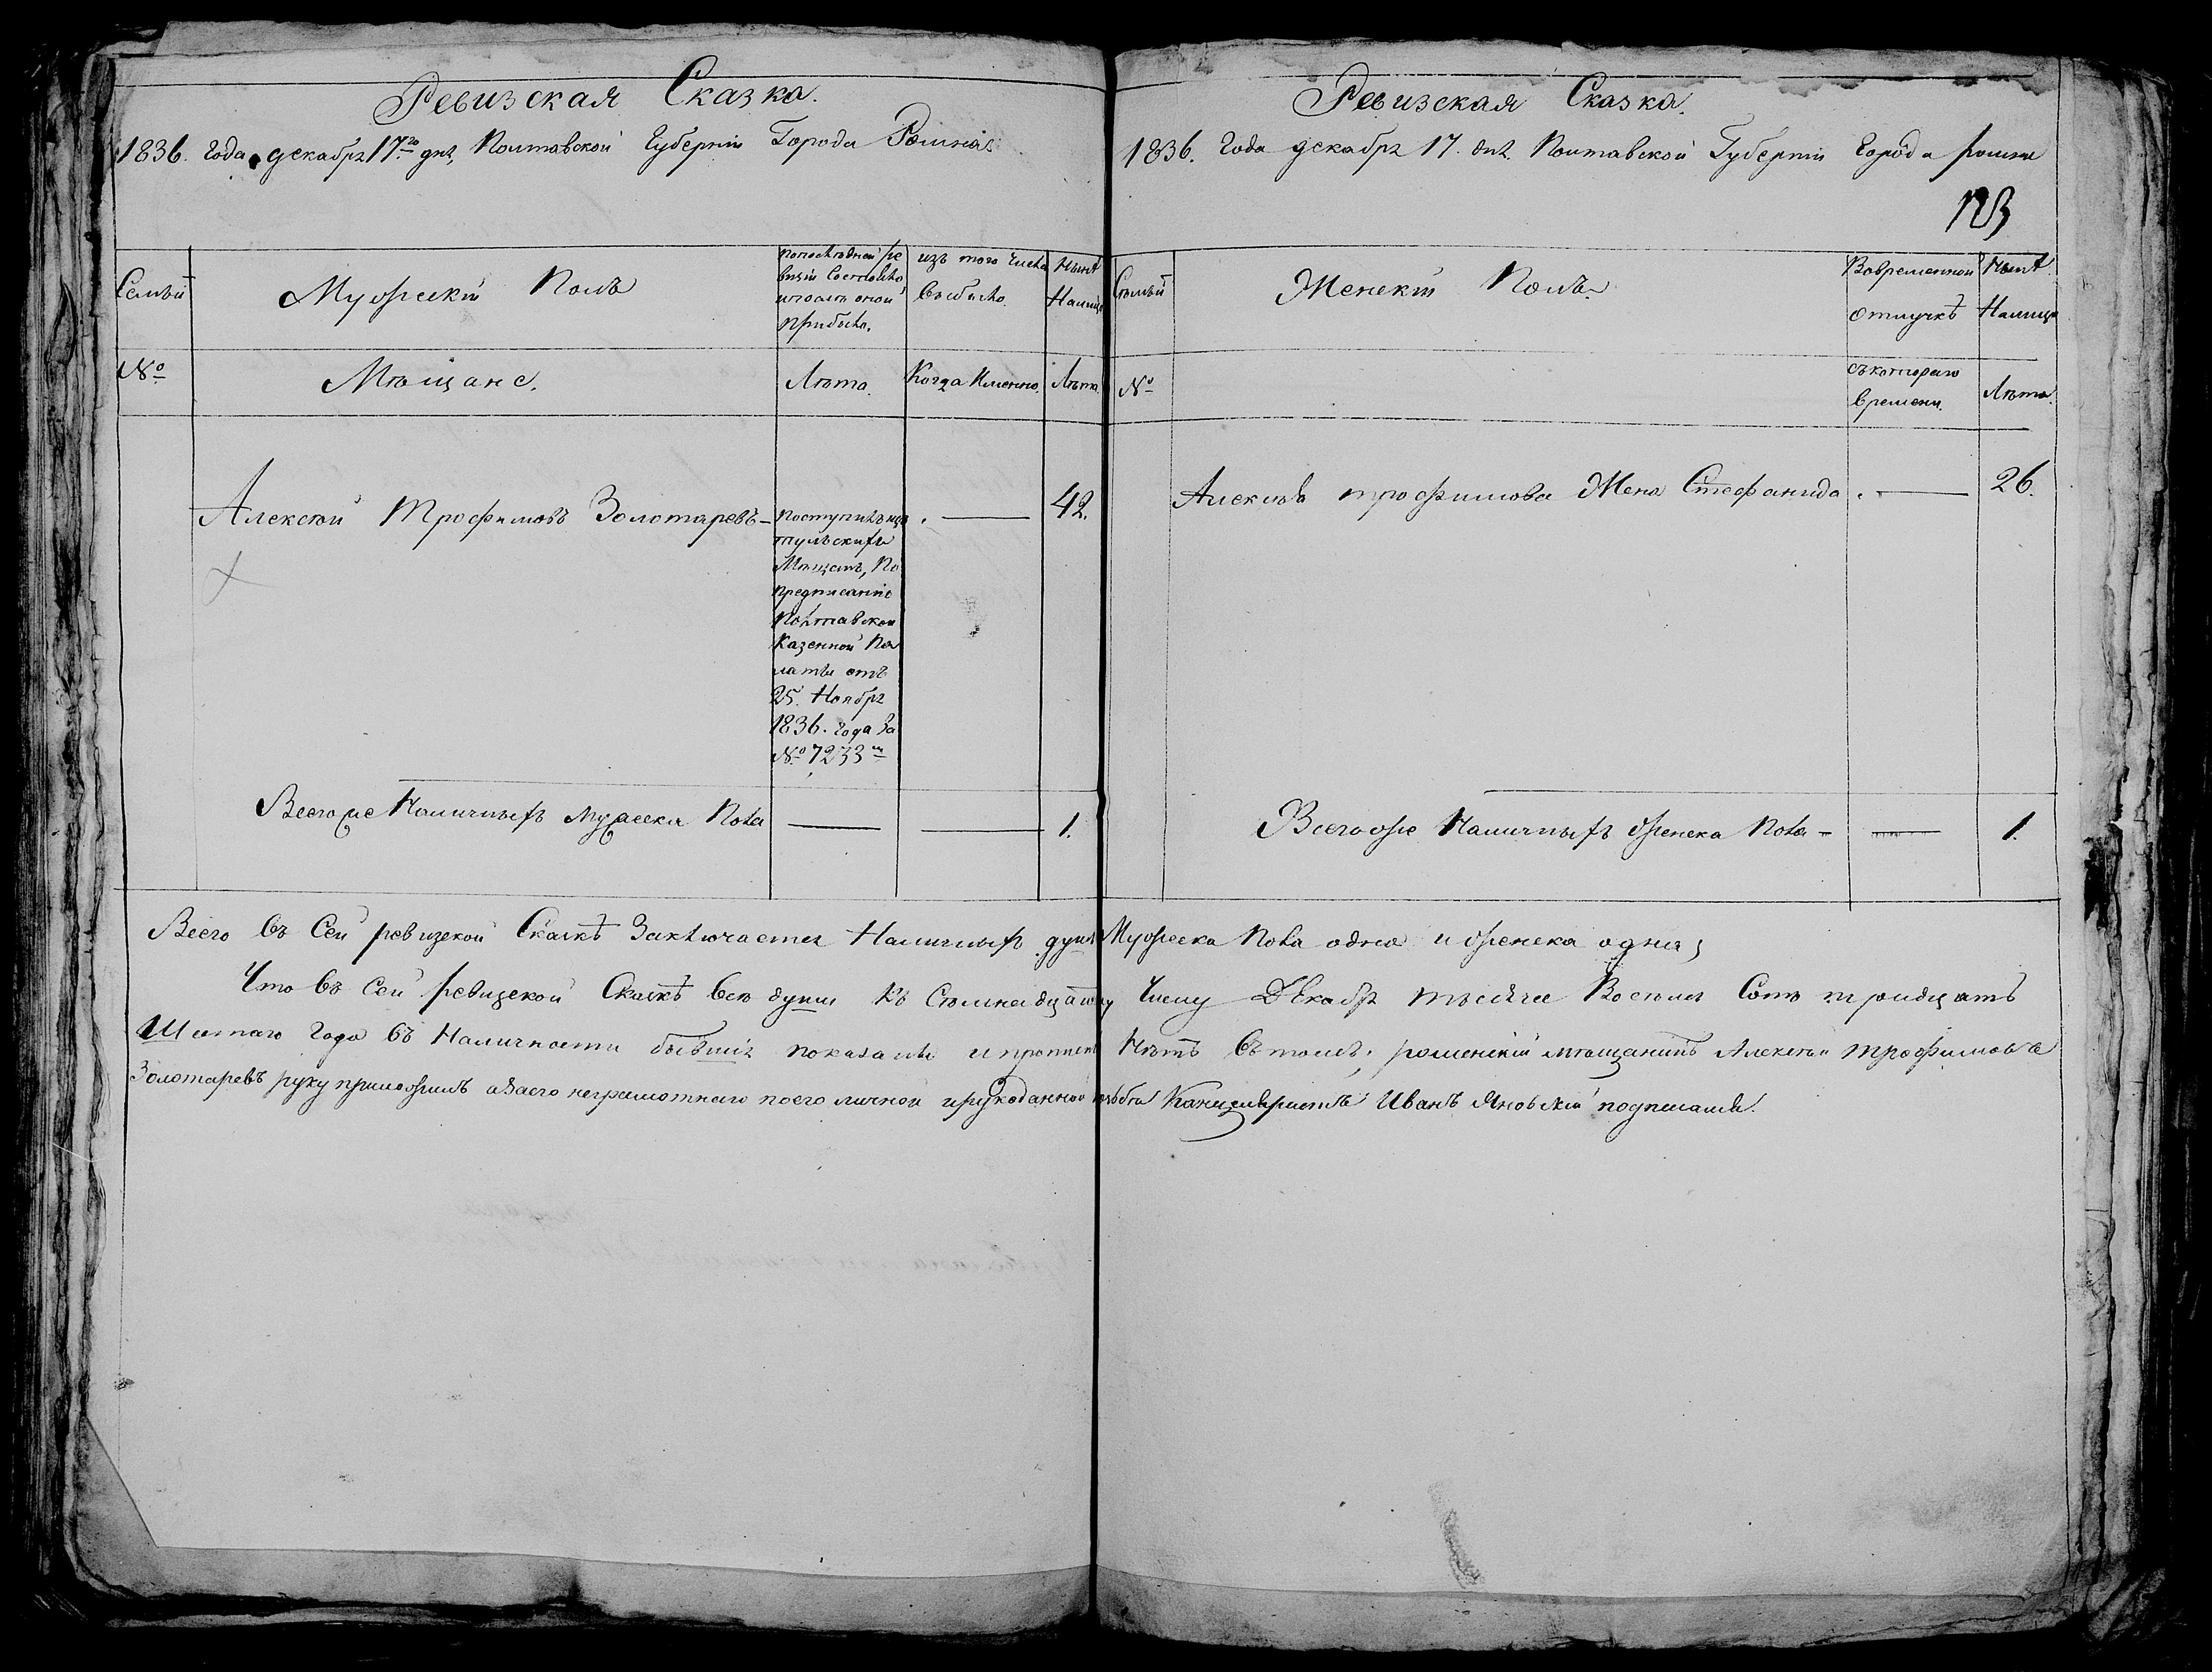 Ревизская Сказка.
1836. Года декабря 17го дня, Полтавской Губернии Города Ромна
Семьи
Мужескій Полъ
По последней ре
визіи состояло
и после оной
прибыло.
изъ того числа
выбыло.
Нынѣ
Налицо
№
Мѣщане.
Лѣта.
Когда Именно.
Лѣта.
Алексѣй Трофимовъ Золотаревъ
поступилъ изъ
тульскихъ
Мѣщанъ, По
предписанію
Полтавской
Казенной Па
латы отъ
25. Ноября
1836. года За
№ 7233м
42.
Всего же Наличныхъ мужеска Пола
1.
Ревизская Сказка.
1836. Года декабря 17. дня. Полтавской Губерніи Города Ромна
123
Семьи
Женскій Полъ.
Во временной
отлучкѣ
Нынѣ
Налицо
№
съ котораго
времени.
Лѣта.
Алексѣя трофимова Жена Стефанида
26.
Всего же Наличныхъ женска Пола
1.
Всего въ Сей ревизской Сказкѣ Заключается Наличныхъ душъ Мужеска Пола одна и женска одна;
Что въ Сей ревизской Сказкѣ все души къ Семнадцатому Числу Декабря тысяча Восемь Сотъ тридцать
Шестаго Года въ Наличности бывшія показаны и прописныхъ Нѣтъ въ томъ; роменскій мѣщанинъ Алексѣй трофимовъ
Золотаревъ руку приложилъ а за его неграмотнаго по его личной и рукоданной прозбы Канцеляристъ Иванъ Яновскій подписалъ.